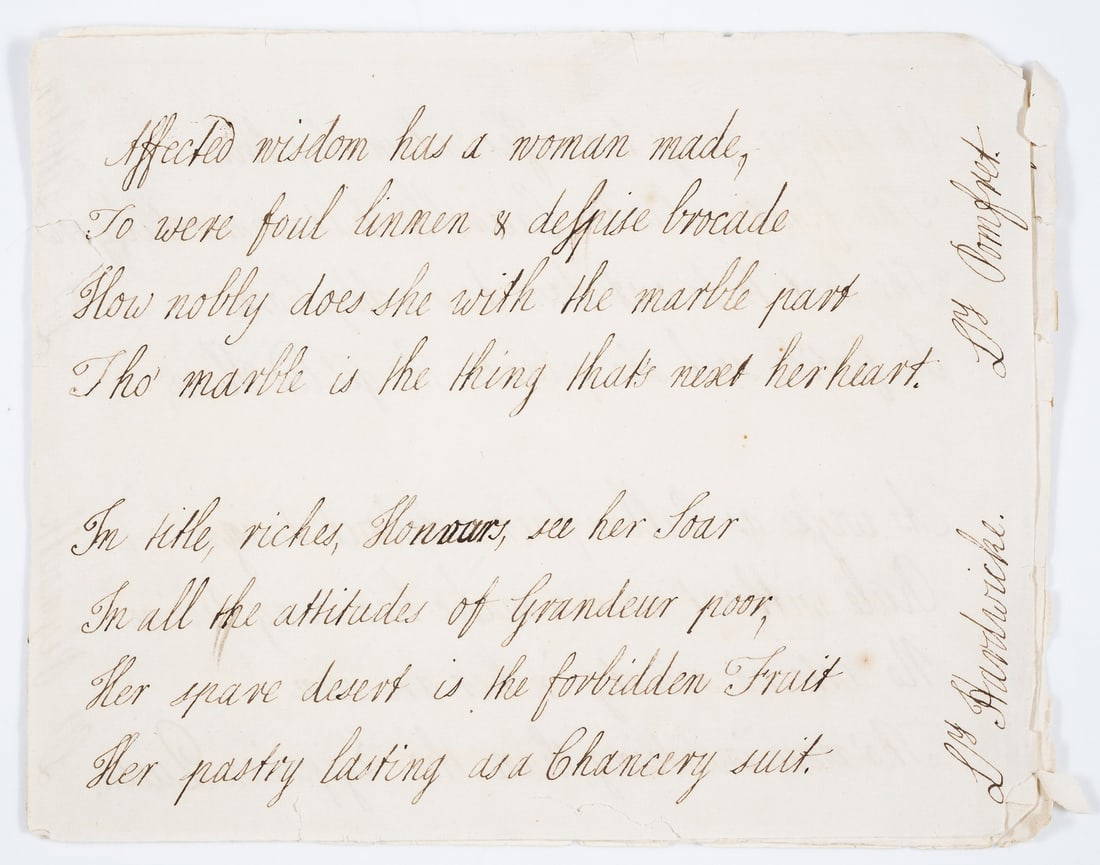 Affected wisdom has a woman made,
To were foul linmen & despise brocade
How nobly does she with the marble part
Tho' marble is the thing that's next her heart.
Ly Pomfret.
In title, riches, Honnars, see her Soar
In all the attitudes of Grandeur poor,
Her spare desert is the forbidden Fruit
Her pastry lasting as a Chancery suit.
Ly Hardwicke.